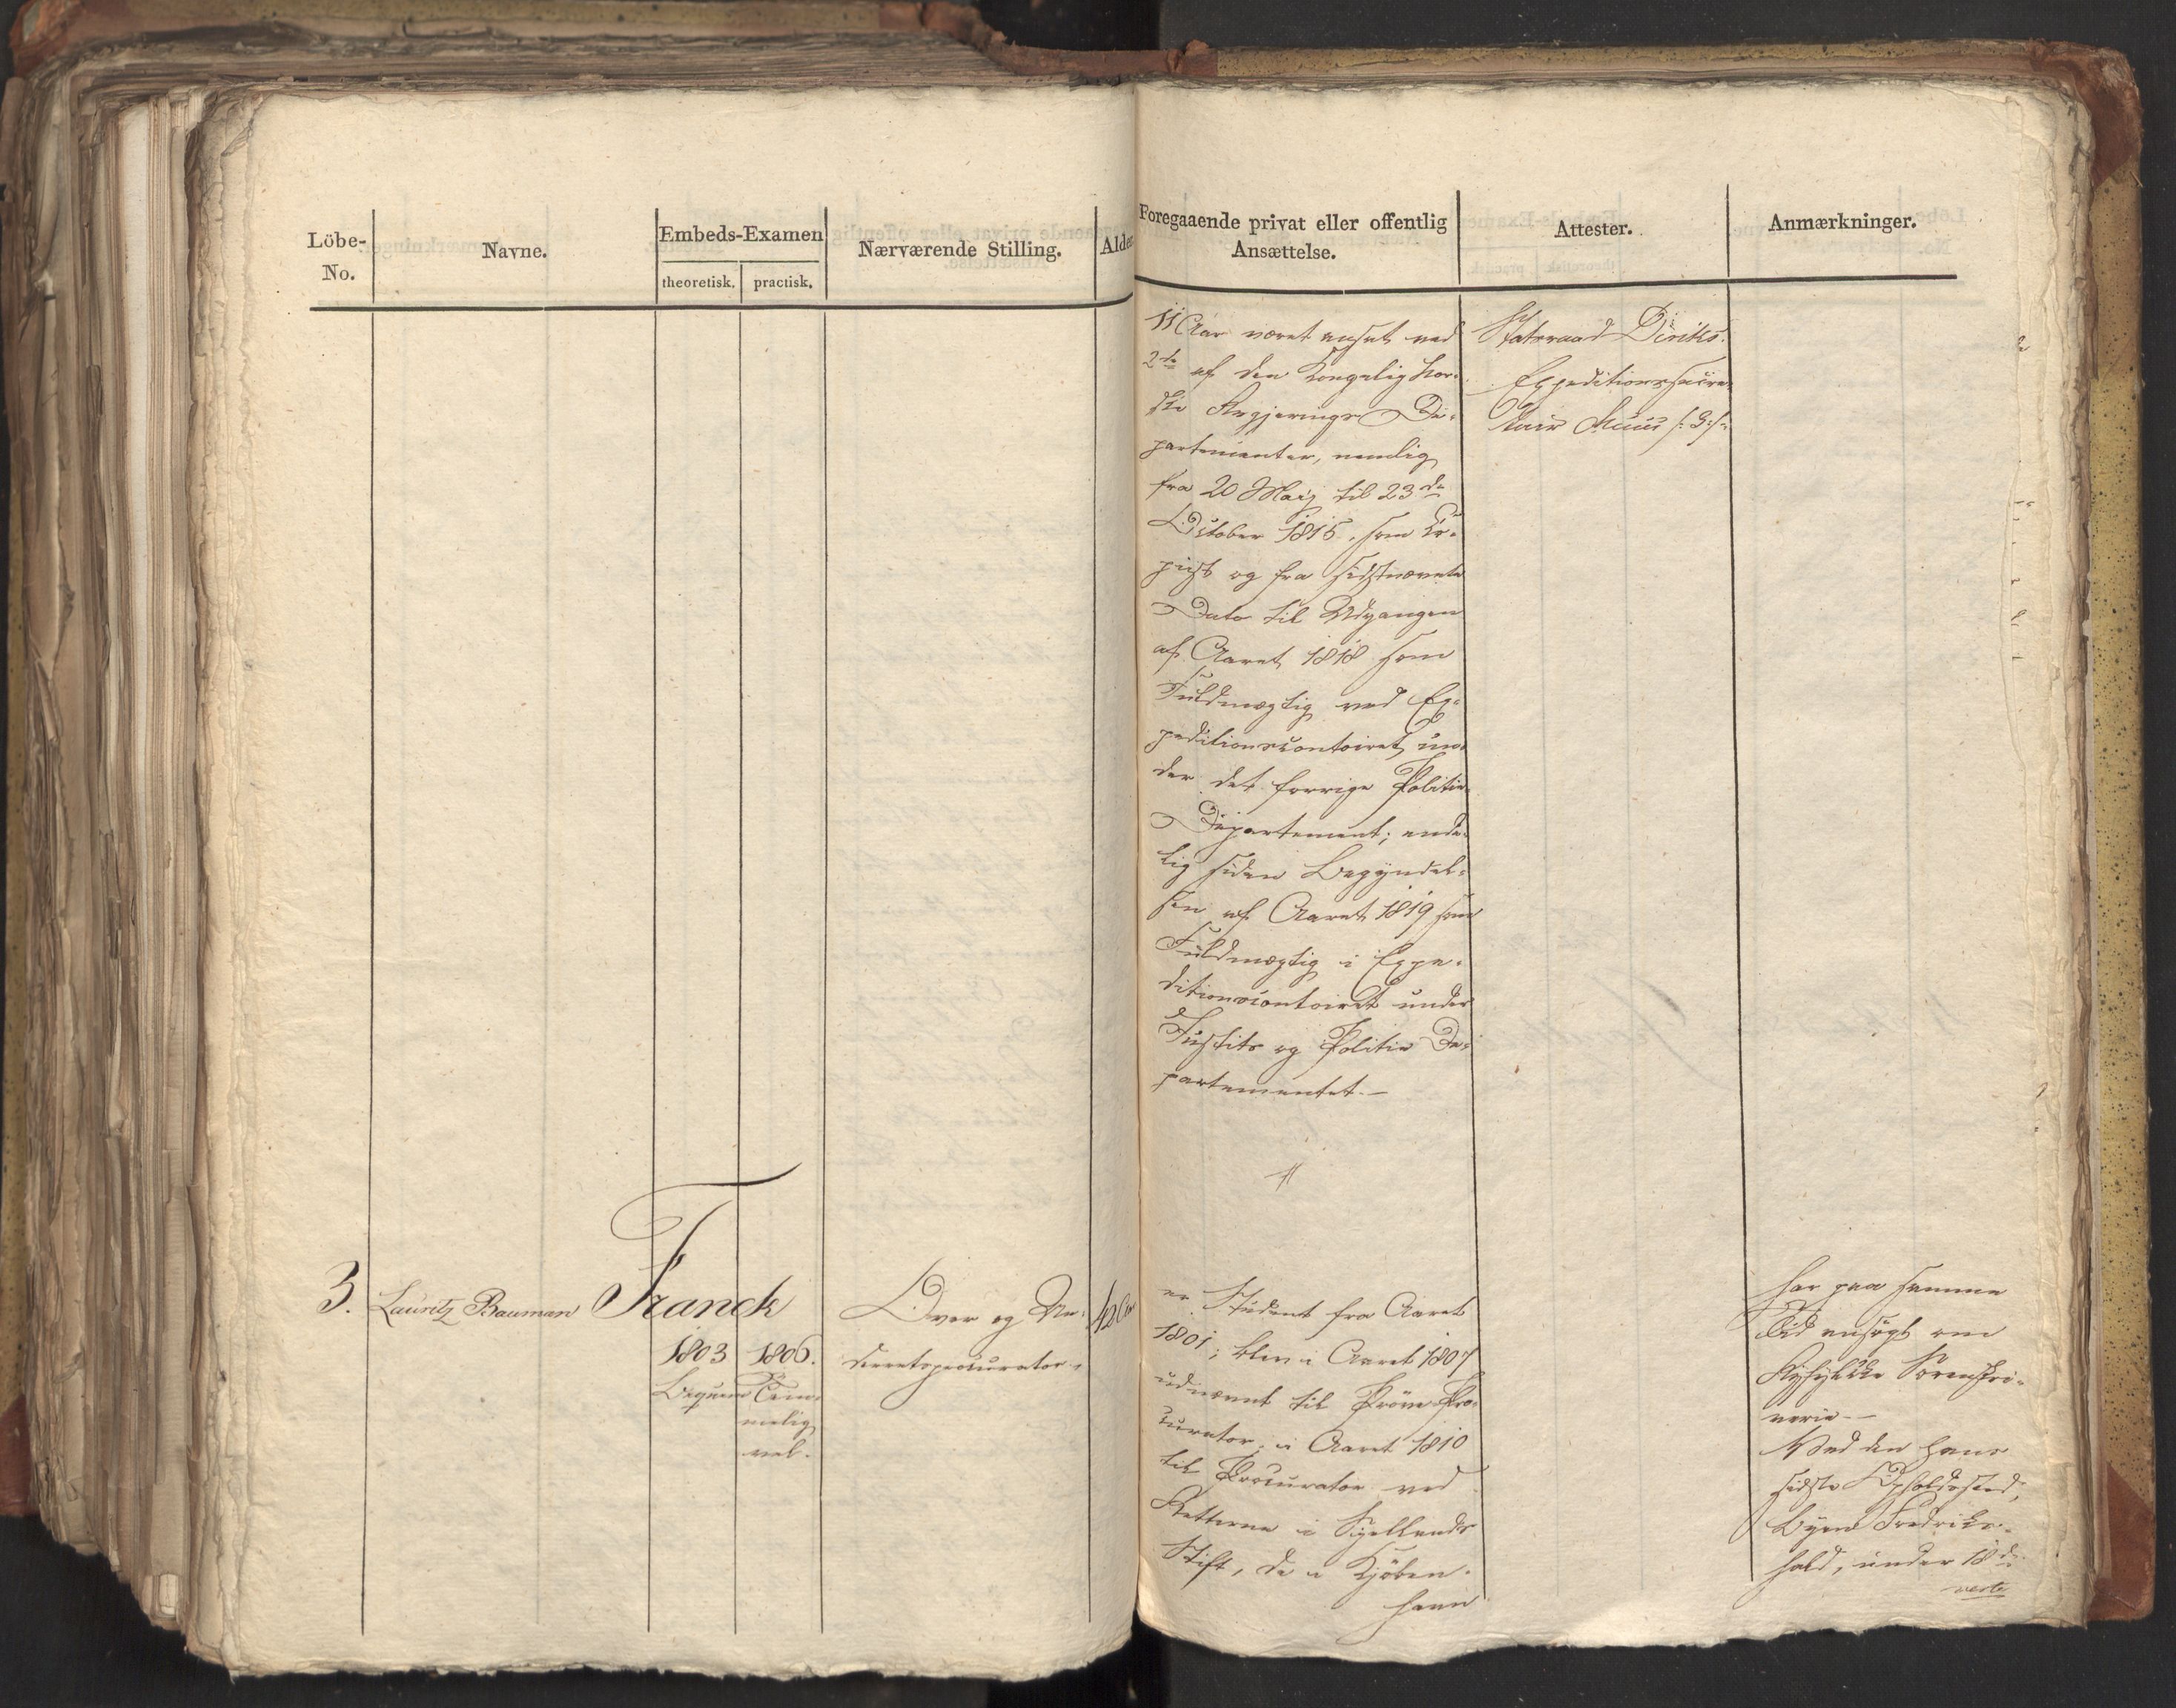 Löbe-
No.
Navne.
Embeds-Examen
theoretisk.
practisk.
Nærværende Stilling.
Alder
Foregaaende privat eller offentlig
Ansættelse.
Attester.
Anmærkninger.
11 Aar været ansat ved
2de af den Kongelig Nor-
ske Regjerings De-
partementer, nemlig
fra 20 Maij til 23de
October 1815, som Co-
pist og fra sidstnævnte
Dato til Udgangen
af Aaret 1818 som
Fuldmægtig ved Ex-
peditionscontoiret un-
der det forrige Politie-
Departement; ende-
lig siden Begyndel-
sen af Aaret 1819 som
Fuldmægtig i Expe-
ditionscontoiret under
Justits og Politie De-
partementet.-
Statsraad Diriks.
Expeditionssecre-
tair Muus
3. Lauritz Bauman Franck
1803 1806.
Beqvem Tem-
melig
vel.
Over og Un-
derretsprocurator.
42 Aar
er Student fra Aaret
1801; blev i Aaret 1807
udnævnt til Prøve-Pro-
curator, i Aaret 1810
til Procurator ved
Retterne i Sjellands
Stift, da i Kjøben-
havn
har paa samme
Tid ansøgt om
Ryfylke Sorenskri-
verie.-
Ved den hans
sidste Opholdssted,
Byen Fredriks-
hald, under 18de
verte